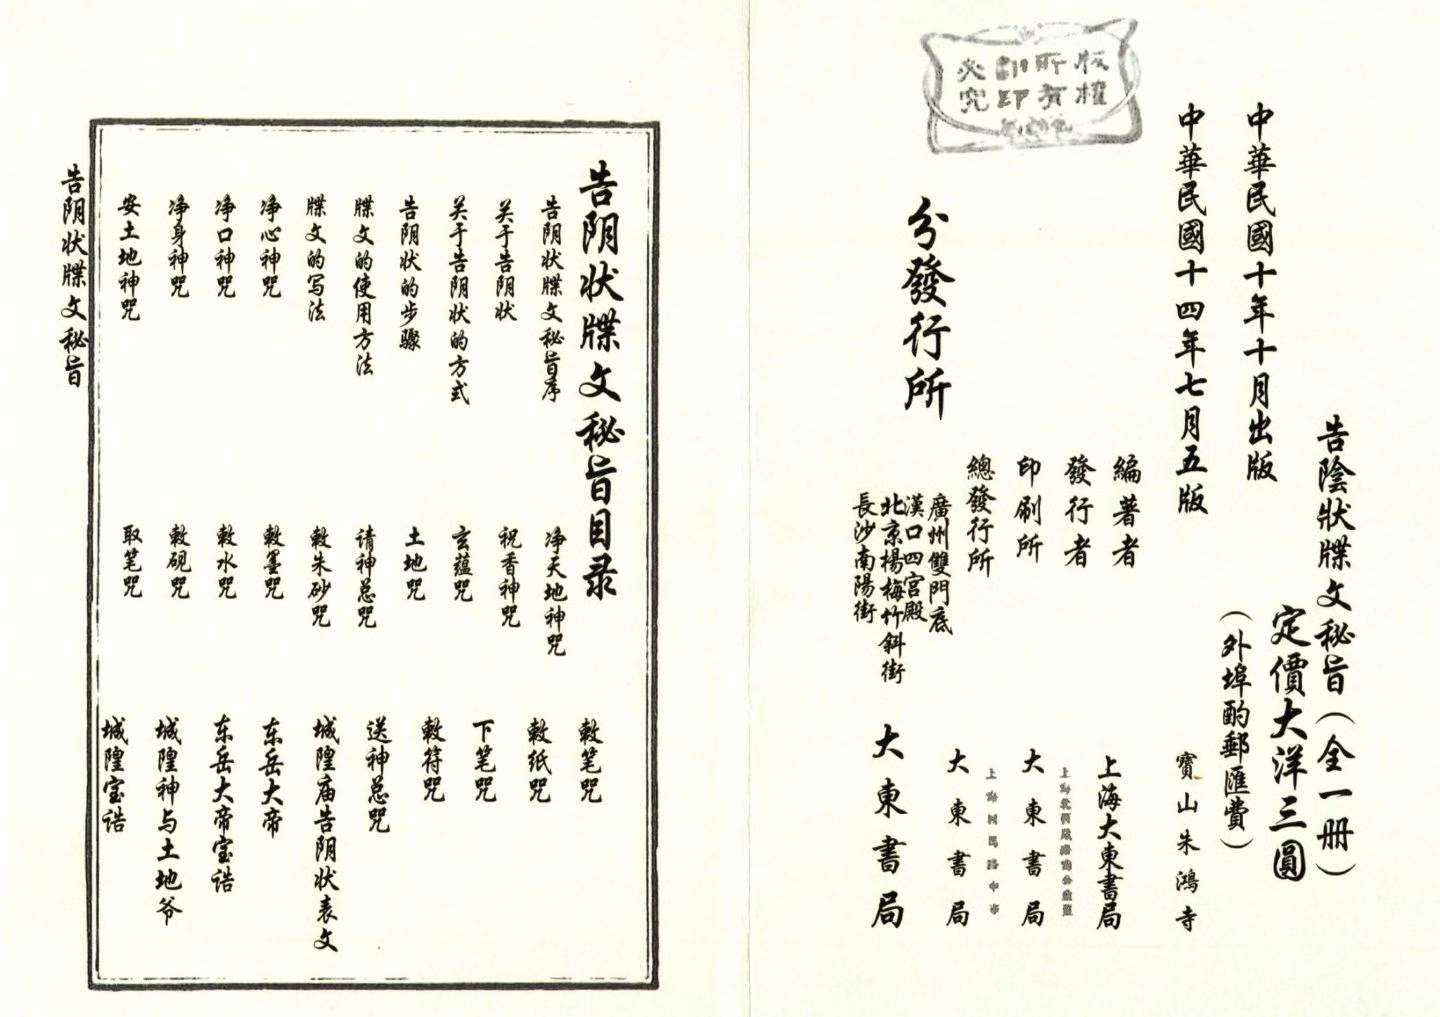 版權
所有
翻印
必究
告陰狀牒文秘旨(全一册)
定價大洋三圓
(外埠酌郵匯費)
中華民國十年十月出版
中華民國十四年七月五版
編著者 寶山朱鴻寺
發行者 上海大東書局
印刷所 大東書局
總發行所 大東書局
分發行所
廣州雙門底
漢口四宮殿
北京楊梅竹斜街
長沙南陽街
大東書局
告阴状牒文秘旨目录
告阴状牒文秘旨序
关于告阴状
关于告阴状的方式
告阴状的步骤
牒文的使用方法
牒文的写法
净心神咒
净口神咒
净身神咒
安土地神咒
净天地神咒
祝香神咒
玄蕴咒
土地咒
请神总咒
敕朱砂咒
敕墨咒
敕水咒
敕砚咒
取笔咒
敕笔咒
敕纸咒
下笔咒
敕符咒
送神总咒
城隍庙告阴状表文
东岳大帝
东岳大帝宝诰
城隍神与土地爷
城隍宝诰
告阴状牒文秘旨